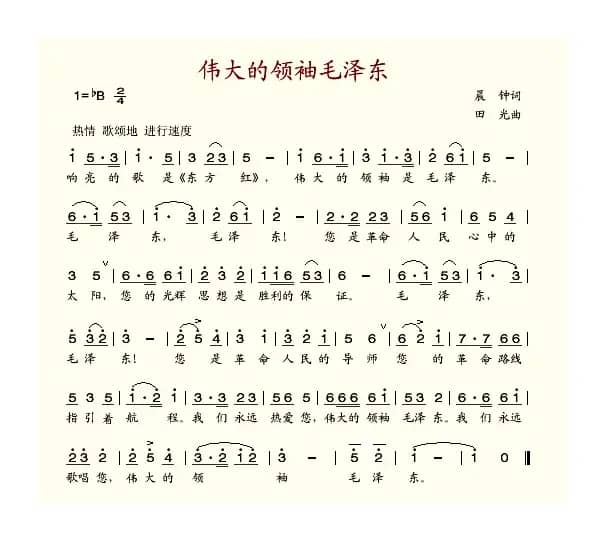 伟大的领袖毛泽东
1=♭B 2/4
晨 钟词
田 光曲
热情 歌颂地 进行速度
1 5·3 | 5· 3 | 3 23 | 5 – | 1 6·1 | 3 1 | 2 61 | 5 – |
响亮的歌是《东方红》,伟大的领袖是毛泽东。
6·1 53 | 1· 3 | 2 61 | 2 – | 2·2 23 | 56 1 | 6 5 4 |
毛泽东,毛泽东!您是革命人民心中的
3 5 | 6·6 61 | 2 3 2 | 116 53 | 5 – | 6·1 53 | 1· 3 |
太阳,您的光辉思想是胜利的保证。毛泽东,
5 32 | 3 – | 2 5 4 | 3·2 1 | 2·3 53 | 5 6 | 6 2 1 | 7·7 66 |
毛泽东!您是革命人民的导师您的革命路线
5 3 5 | 1·2 | 3·3 23 | 5·3 53 | 5 666 61 | 2·3 5 | 6·6 61 |
指引着航程。我们永远热爱您,伟大的领袖毛泽东。我们永远
23 2 | 2 5 4 | 3·2 12 | 3 – | 5 2 | 1 – | 1 0 ‖
歌唱您,伟大的领袖毛泽东。